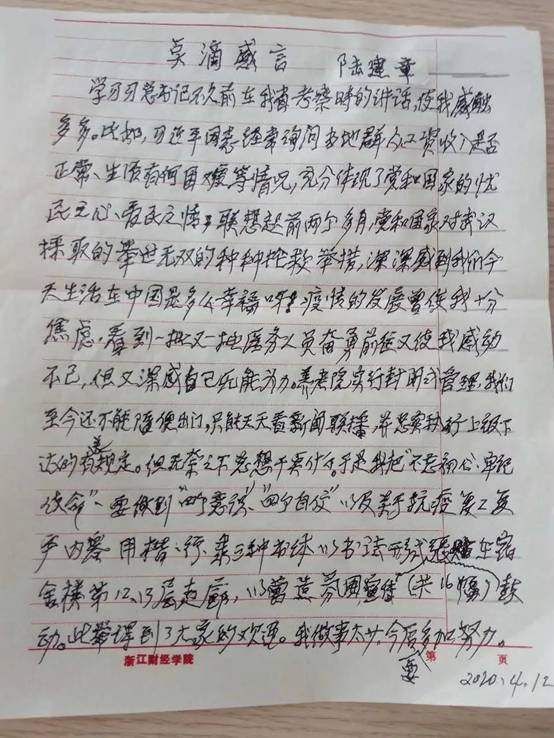 点滴感言 陆建章
学习习总书记不久前在我省考察时的讲话,使我感触
多多。比如,习近平同志经常询问当地群众工资收入是否
正常、生活有何困难等情况,充分体现了党和国家的忧
民之心、爱民之情。联想起前两个多月,党和国家对武汉
采取的举世无双的种种抢救举措,深深感到我们今
天生活在中国是多么幸福呀!疫情的发展曾使我十分
焦虑,看到一批又一批医务人员奋勇前往又使我感动
不已,但又深感自己无能为力。养老院实行封闭式管理,我们
至今还不能随便出门,只能天天看新闻联播,并忠实执行上级下
达的有关规定。但无奈之下总想干点什么。于是我把“不忘初心、牢记
使命”、要做到“四个意识”、“四个自信”以及关于抗疫复工复
产内容用楷、行、隶三种书体以书法形式张贴在宿
舍楼第12、13层走廊,以营造氛围宣传(共16幅)鼓
动。此举得到了大家的欢迎。我做事太少,今后要多加努力。
浙江财经学院 第 页
2020.4.12